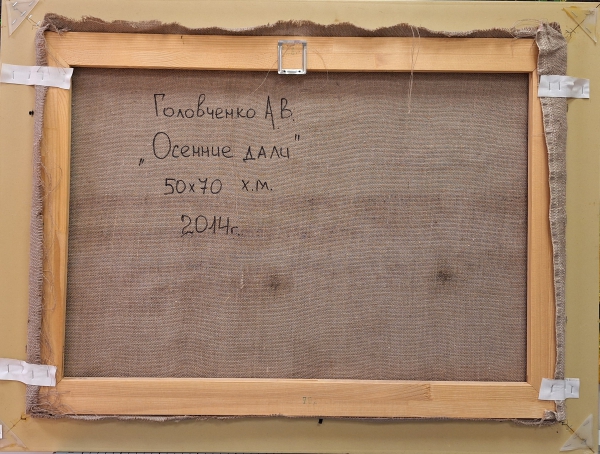 Головченко А.В.
„Осенние дали"
50х70 х.м.
2014г.